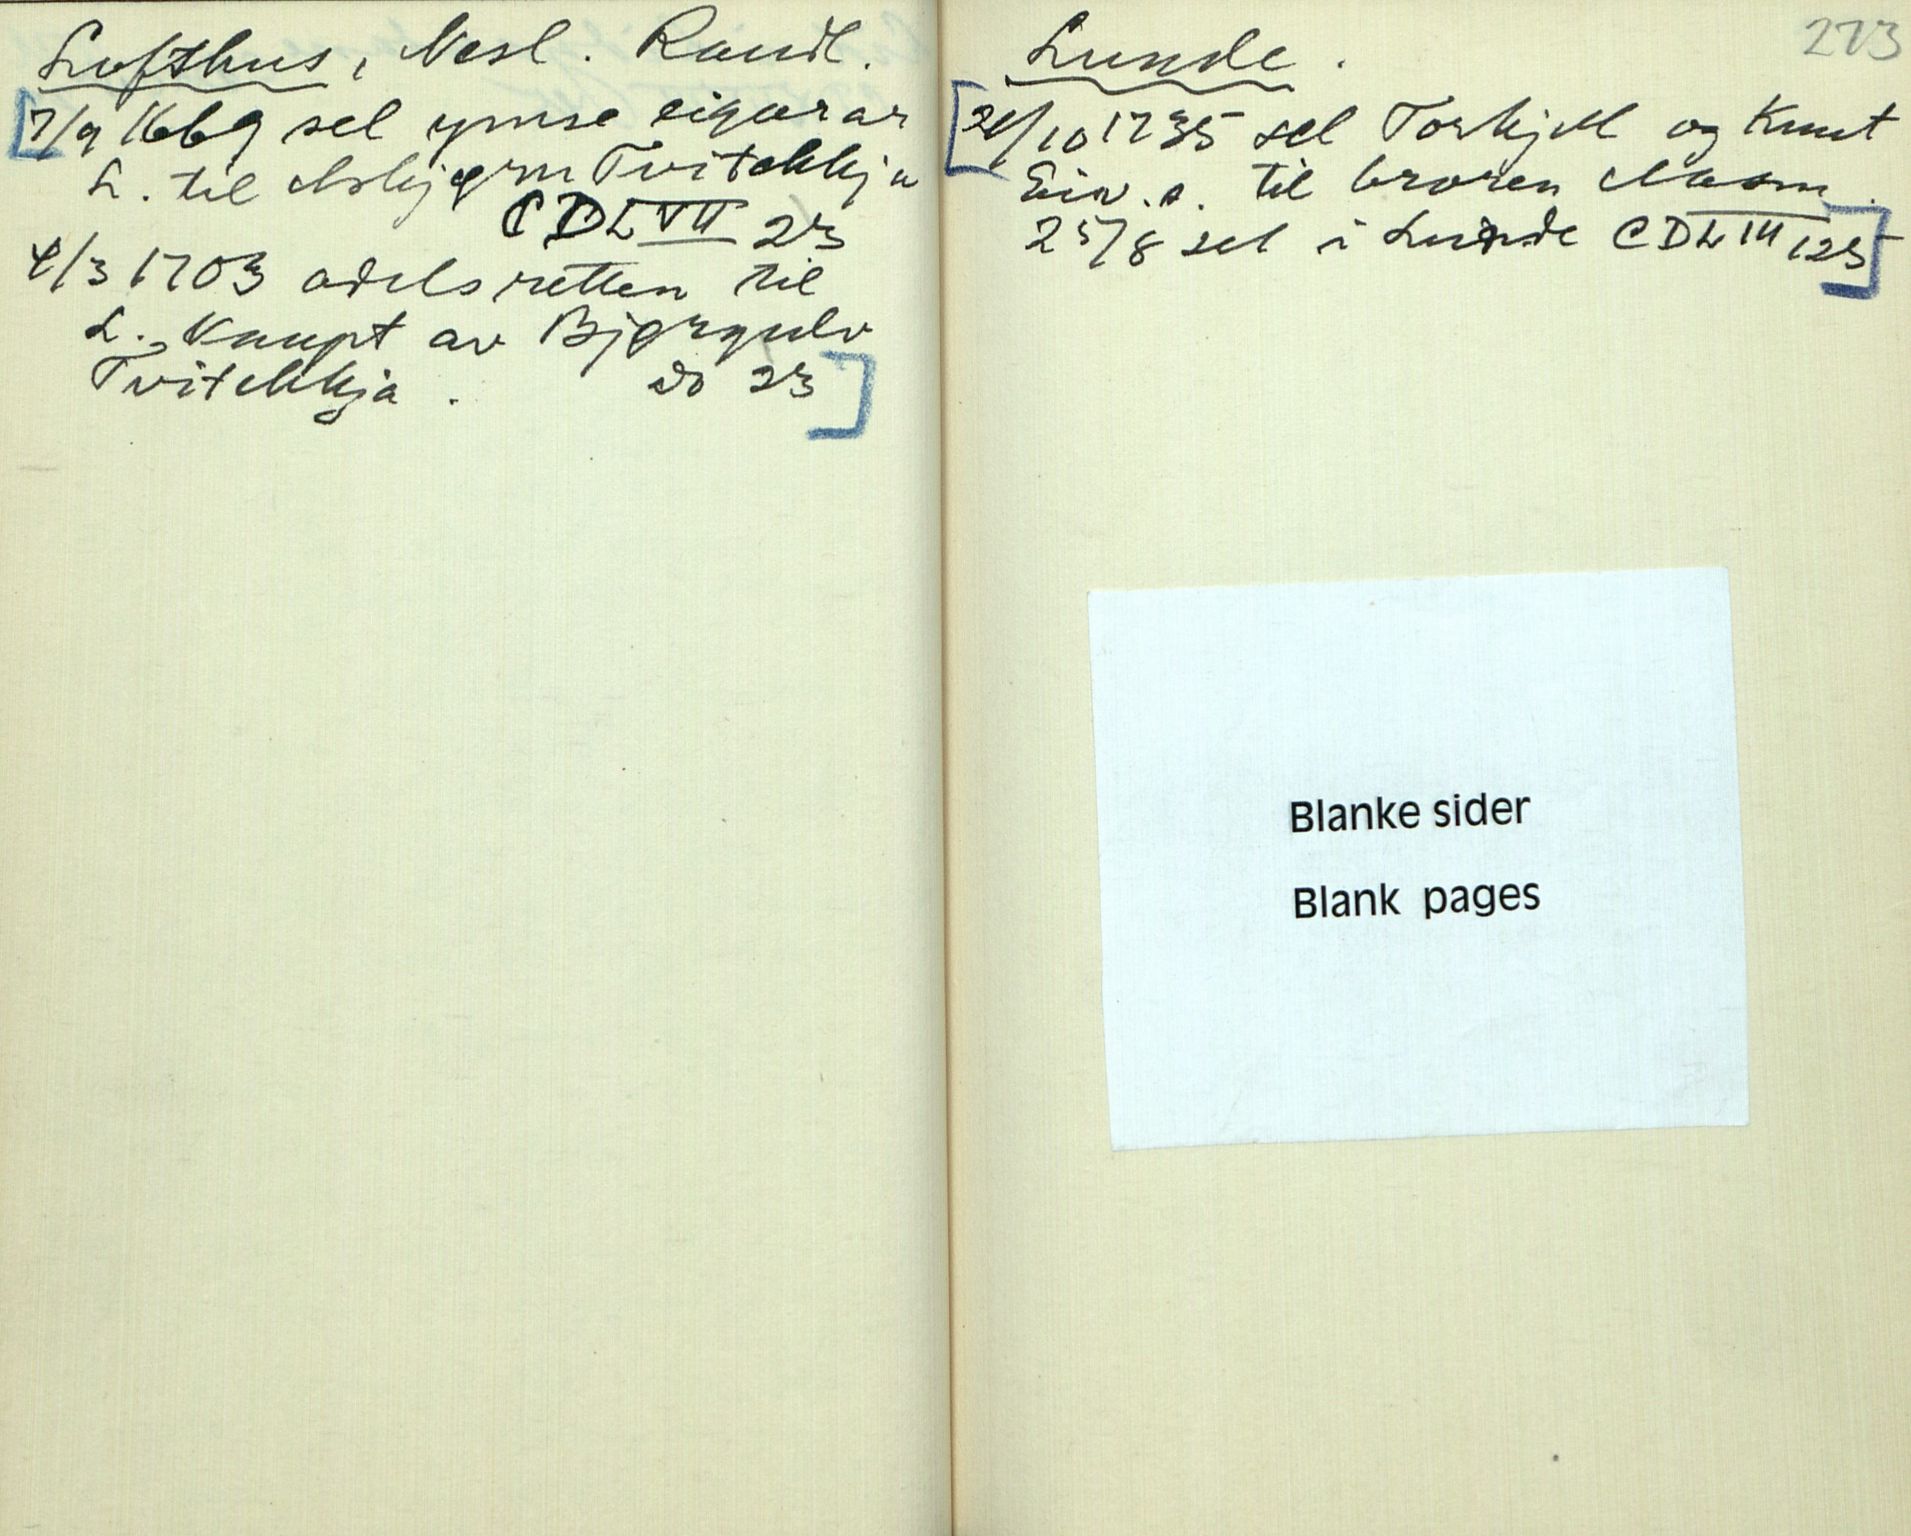 Lofthus, Nesl. Raudl.
7/9 1669 sel ymse eigarar
L. til Asbjørn Tvitekkja
CDL VII 23
4/3 1703 odelsretten til
L. Kaupt av Bjørgulv
Tvitekkja. do 23
273
Lunde.
21/10 1735 sel Torkjell og Knut
Eiv. s. til broren Aasm.
25/8 sel i Lunde CDL III 125
Blanke sider
Blank pages